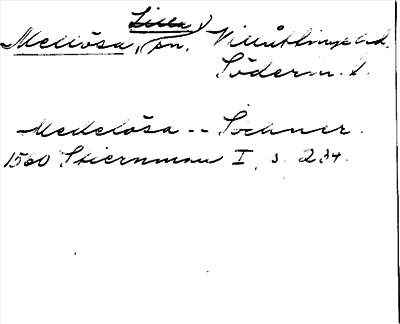 Lilla
Mellösa, sn. Villåttinge hd.
Söderm. l.
Medelösa -- Sochner.
1560 Stiernman I, s. 234.